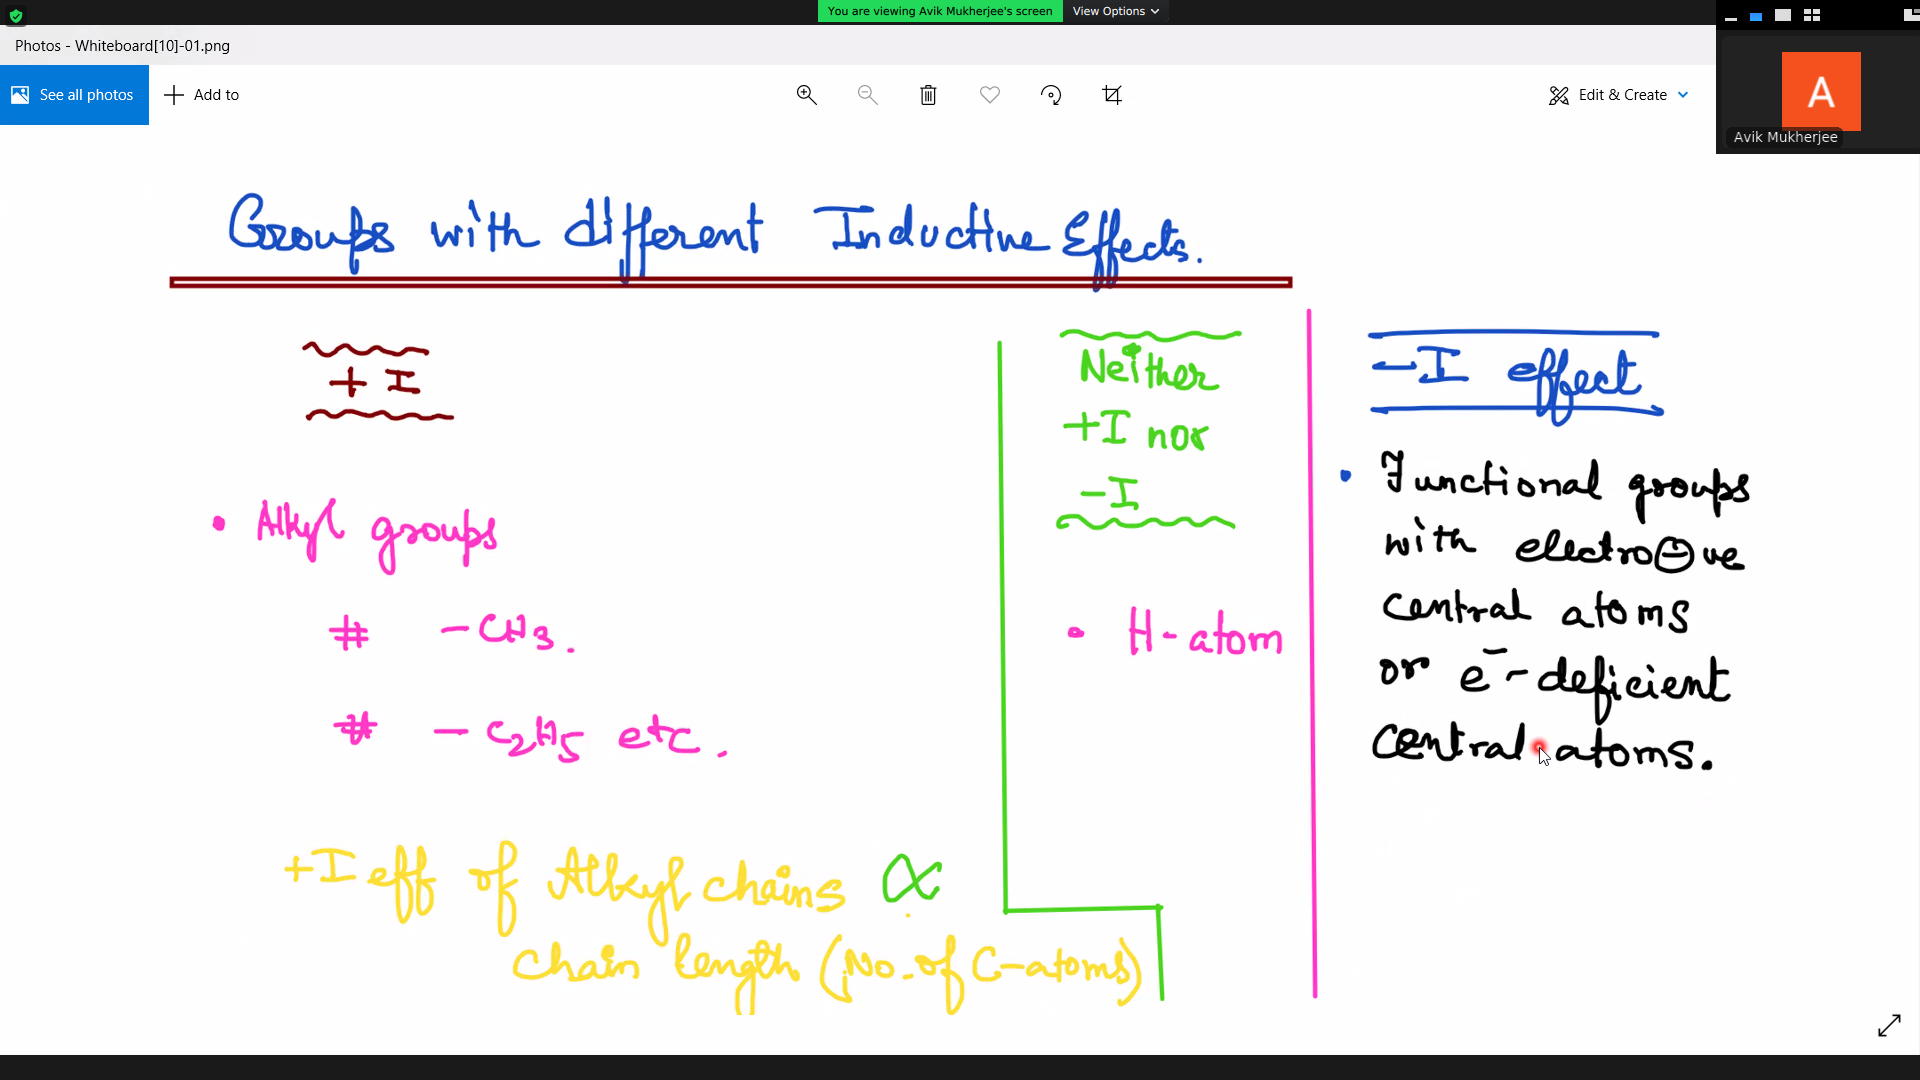 You are viewing Avik Mukherjee's screen
View Options
Photos - Whiteboard[10]-01.png
See all photos
Add to
Edit & Create
A
Avik Mukherjee
Groups with different Inductive Effects.
+ I
• Alkyl groups
# - CH3.
# - C2H5 etc.
+I eff of Alkyl chains ∝
chain length (No. of C-atoms)
Neither
+I nor
-I
• H-atom
-I effect
• Functional groups
with electro⊖ve
central atoms
or e⁻-deficient
central atoms.